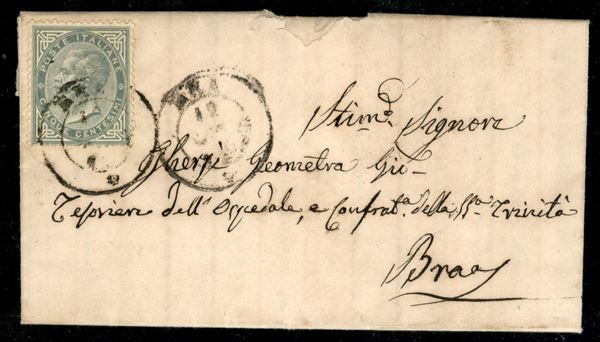 POSTE ITALIANE
CENTESIMI
BRA
12
Stim.º Signore
Geometra
Tesoriere dell'Ospedale, e Confrat.ª della SS.ª Trinità
Bra